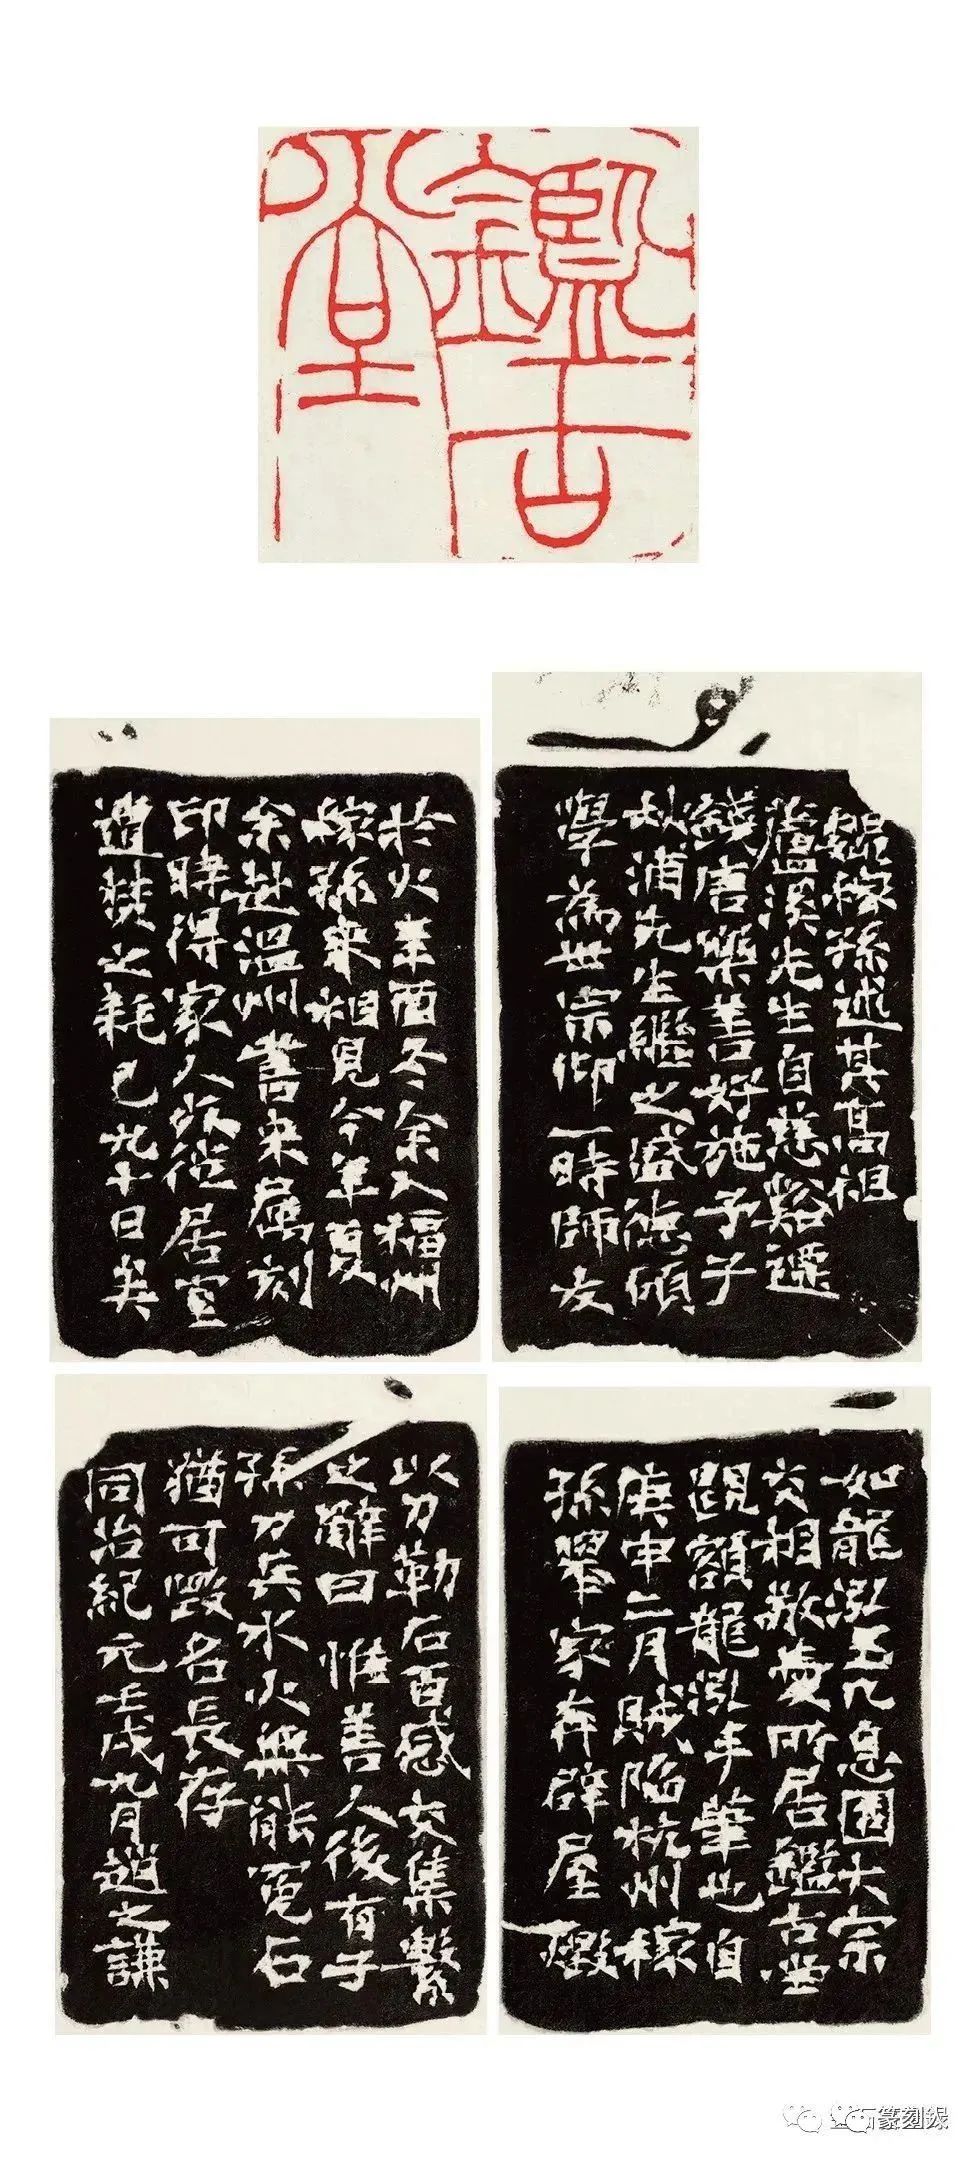 鑑古
堂
魏稼孫述其高祖
蘆溪先生自慈谿遷
錢唐樂善好施予子
秋浦先生繼之盛德碩
學為世宗仰一時師友
如龍泓玉几息園大宗
交相敬愛所居鑑古堂
題額龍泓手筆也自
庚申二月賊陷杭州稼
孫挈家奔辟屋燬
於火辛酉冬余入福州
稼孫來相見今年夏
余赴溫州書來屬刻
印時得家人死徙居室
遭焚之耗已九十日矣
以刀勒石百感交集繫
之辭曰 惟善人後有子
孫刀兵水火無能冤石
猶可毀名長存
同治紀元壬戌九月趙之謙
石篆刻錄